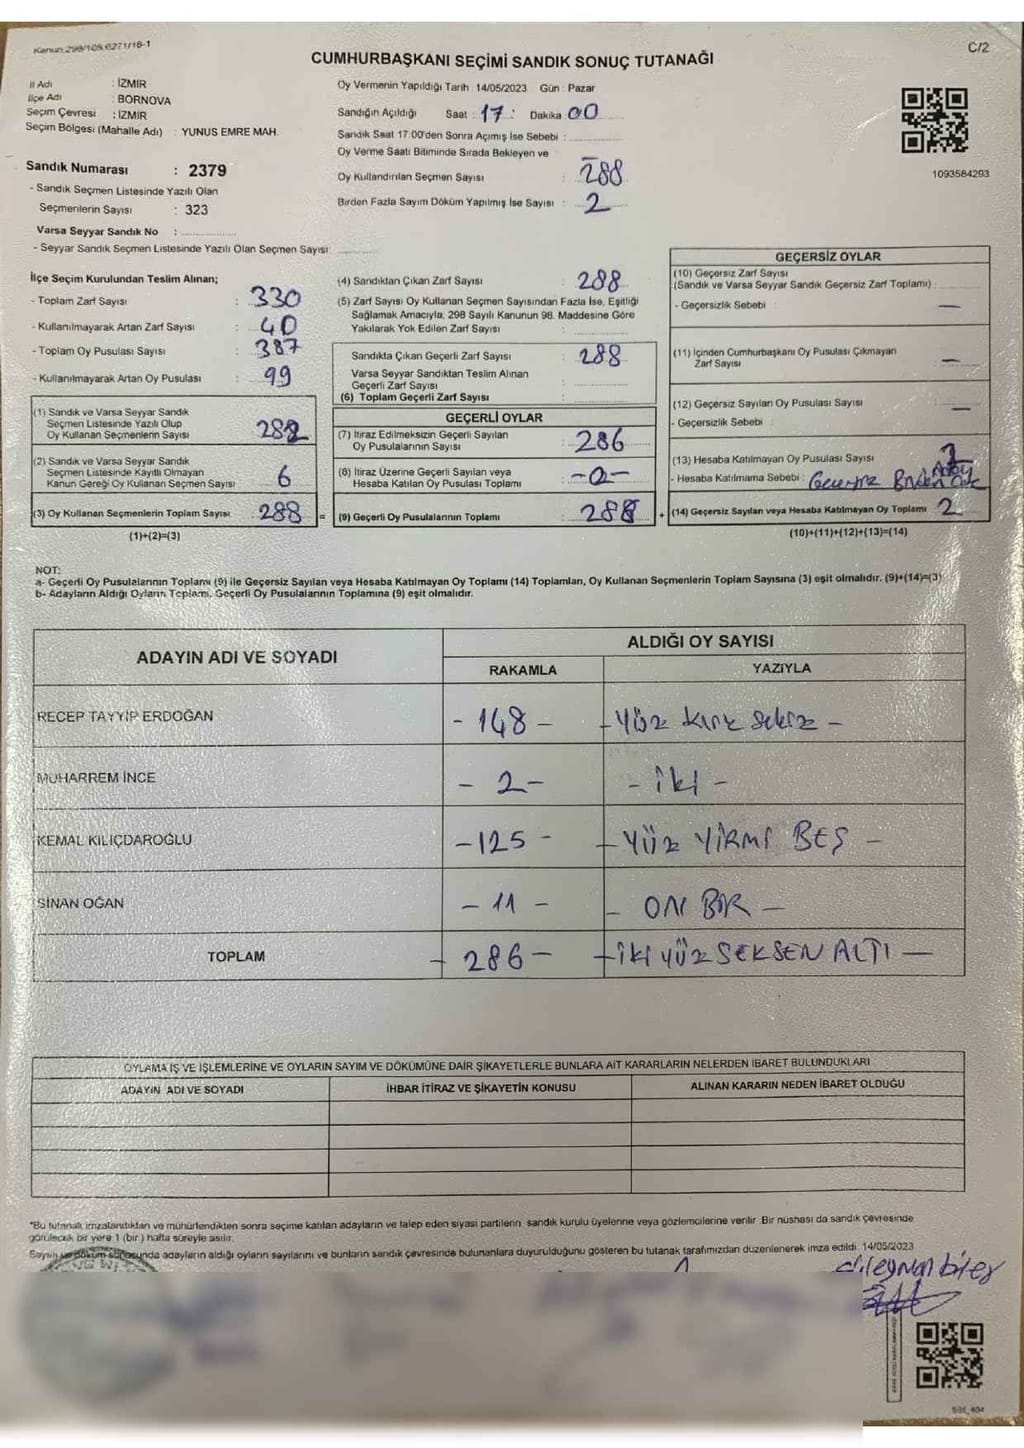 Kanun 298/105,6271/18-1
C/2
CUMHURBAŞKANI SEÇİMİ SANDIK SONUÇ TUTANAĞI
İl Adı : İZMİR
İlçe Adı : BORNOVA
Seçim Çevresi : İZMİR
Seçim Bölgesi (Mahalle Adı) : YUNUS EMRE MAH.
Oy Vermenin Yapıldığı Tarih : 14/05/2023 Gün : Pazar
Sandığın Açıldığı Saat : 17 : Dakika 00
Sandık Saat 17.00'den Sonra Açmış İse Sebebi :
Oy Verme Saati Bitiminde Sırada Bekleyen ve
Oy Kullandırılan Seçmen Sayısı : 288
Birden Fazla Sayım Döküm Yapılmış İse Sayısı : 2
1093584293
Sandık Numarası : 2379
- Sandık Seçmen Listesinde Yazılı Olan
Seçmenlerin Sayısı : 323
Varsa Seyyar Sandık No :
- Seyyar Sandık Seçmen Listesinde Yazılı Olan Seçmen Sayısı:
İlçe Seçim Kurulundan Teslim Alınan;
- Toplam Zarf Sayısı : 330
- Kullanılmayarak Artan Zarf Sayısı : 40
- Toplam Oy Pusulası Sayısı : 387
- Kullanılmayarak Artan Oy Pusulası : 99
(1) Sandık ve Varsa Seyyar Sandık
Seçmen Listesinde Yazılı Olup
Oy Kullanan Seçmenlerin Sayısı : 282
(2) Sandık ve Varsa Seyyar Sandık
Seçmen Listesinde Kayıtlı Olmayan
Kanun Gereği Oy Kullanan Seçmen Sayısı : 6
(3) Oy Kullanan Seçmenlerin Toplam Sayısı : 288 =
(1)+(2)=(3)
(4) Sandıktan Çıkan Zarf Sayısı : 288
(5) Zarf Sayısı Oy Kullanan Seçmen Sayısından Fazla İse, Eşitliği
Sağlamak Amacıyla; 298 Sayılı Kanunun 98. Maddesine Göre
Yakılarak Yok Edilen Zarf Sayısı :
Sandıkta Çıkan Geçerli Zarf Sayısı : 288
Varsa Seyyar Sandıktan Teslim Alınan
Geçerli Zarf Sayısı :
(6) Toplam Geçerli Zarf Sayısı :
GEÇERLİ OYLAR
(7) İtiraz Edilmeksizin Geçerli Sayılan
Oy Pusulalarının Sayısı : 286
(8) İtiraz Üzerine Geçerli Sayılan veya
Hesaba Katılan Oy Pusulası Toplamı : -0-
(9) Geçerli Oy Pusulalarının Toplamı : 288 +
GEÇERSİZ OYLAR
(10) Geçersiz Zarf Sayısı
(Sandık ve Varsa Seyyar Sandık Geçersiz Zarf Toplamı) :
- Geçersizlik Sebebi : —
(11) İçinden Cumhurbaşkanı Oy Pusulası Çıkmayan
Zarf Sayısı : —
(12) Geçersiz Sayılan Oy Pusulası Sayısı : —
- Geçersizlik Sebebi :
(13) Hesaba Katılmayan Oy Pusulası Sayısı :
- Hesaba Katılmama Sebebi : Geçersiz Birden Çok
(14) Geçersiz Sayılan veya Hesaba Katılmayan Oy Toplamı 2
(10)+(11)+(12)+(13)=(14)
NOT:
a- Geçerli Oy Pusulalarının Toplamı (9) ile Geçersiz Sayılan veya Hesaba Katılmayan Oy Toplamı (14) Toplamları, Oy Kullanan Seçmenlerin Toplam Sayısına (3) eşit olmalıdır. (9)+(14)=(3)
b- Adayların Aldığı Oyların Toplamı, Geçerli Oy Pusulalarının Toplamına (9) eşit olmalıdır.
ADAYIN ADI VE SOYADI
ALDIĞI OY SAYISI
RAKAMLA YAZIYLA
RECEP TAYYİP ERDOĞAN - 148 - - Yüz kırk sekiz -
MUHARREM İNCE - 2 - - iki -
KEMAL KILIÇDAROĞLU - 125 - - YÜZ YİRMİ BEŞ -
SİNAN OĞAN - 11 - - ON BİR -
TOPLAM - 286 - - İKİ YÜZ SEKSEN ALTI -
OYLAMA İŞ VE İŞLEMLERİNE VE OYLARIN SAYIM VE DÖKÜMÜNE DAİR ŞİKAYETLERLE BUNLARA AİT KARARLARIN NELERDEN İBARET BULUNDUKLARI
ADAYIN ADI VE SOYADI İHBAR İTİRAZ VE ŞİKAYETİN KONUSU ALINAN KARARIN NEDEN İBARET OLDUĞU
*Bu tutanak imzalandıktan ve mühürlendikten sonra seçime katılan adayların ve talep eden siyasi partilerin sandık kurulu üyelerine veya gözlemcilerine verilir. Bir nüshası da sandık çevresinde
görülecek bir yere 1 (bir) hafta süreyle asılır.
Sayım ve döküm sonucunda adayların aldığı oyların sayılarını ve bunların sandık çevresinde bulunanlara duyurulduğunu gösteren bu tutanak tarafımızdan düzenlenerek imza edildi. 14/05/2023